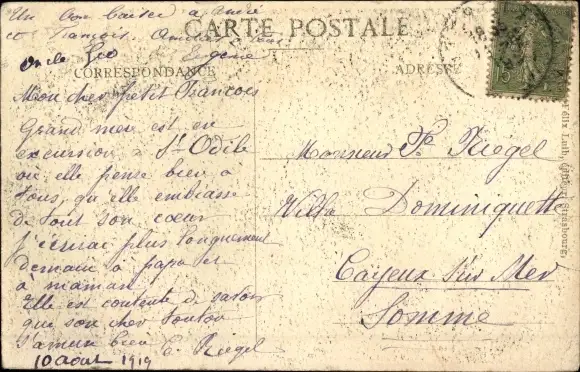 Un bon baiser à André
et François. Amitiés à tous
Oncle Geo Eugénie
CARTE POSTALE
CORRESPONDANCE
ADRESSE
Mon cher petit François
Grand mère est en
excursion à Ste Odile
où elle pense bien à
tous, qu'elle embrasse
de tout son cœur
J'écrirai plus longuement
demain à papa et
à maman
Elle est contente de savoir
que son cher Toutou
s'amuse bien
E. Riegel
10 août 1919
Monsieur P. Riegel
Villa Dominiquette
Cayeux sur Mer
Somme
15
Félix Luib, Strasbourg